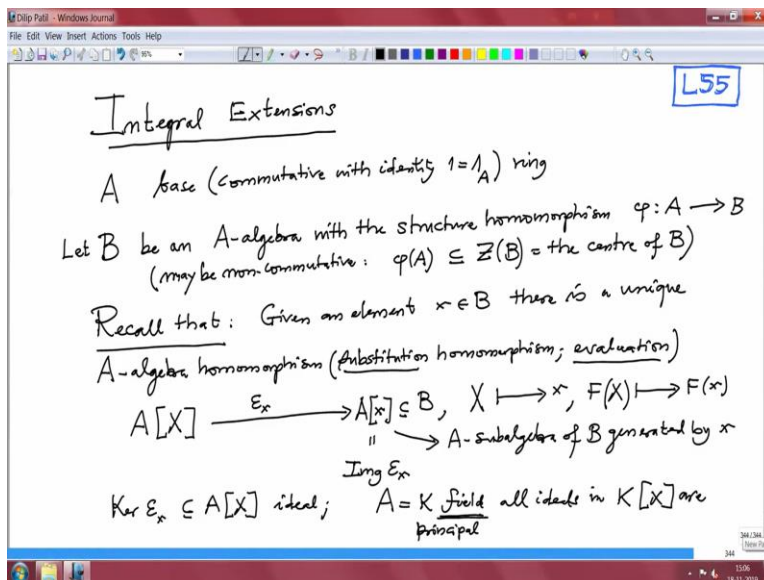 Dilip Patil - Windows Journal
File Edit View Insert Actions Tools Help
95%
L55
Integral Extensions
A base (commutative with identity 1=1_A) ring
Let B be an A-algebra with the structure homomorphism φ: A → B
(may be non-commutative: φ(A) ⊆ Z(B) = the centre of B)
Recall that: Given an element x ∈ B there is a unique
A-algebra homomorphism (substitution homomorphism; evaluation)
A[X] —ε_x→ A[x] ⊆ B, X ↦ x, F(X) ↦ F(x)
" → A-subalgebra of B generated by x
Img ε_x
Ker ε_x ⊆ A[X] ideal; A = K field all ideals in K[X] are
principal
344 / 344
New Pa
344
15:06
18-11-2019